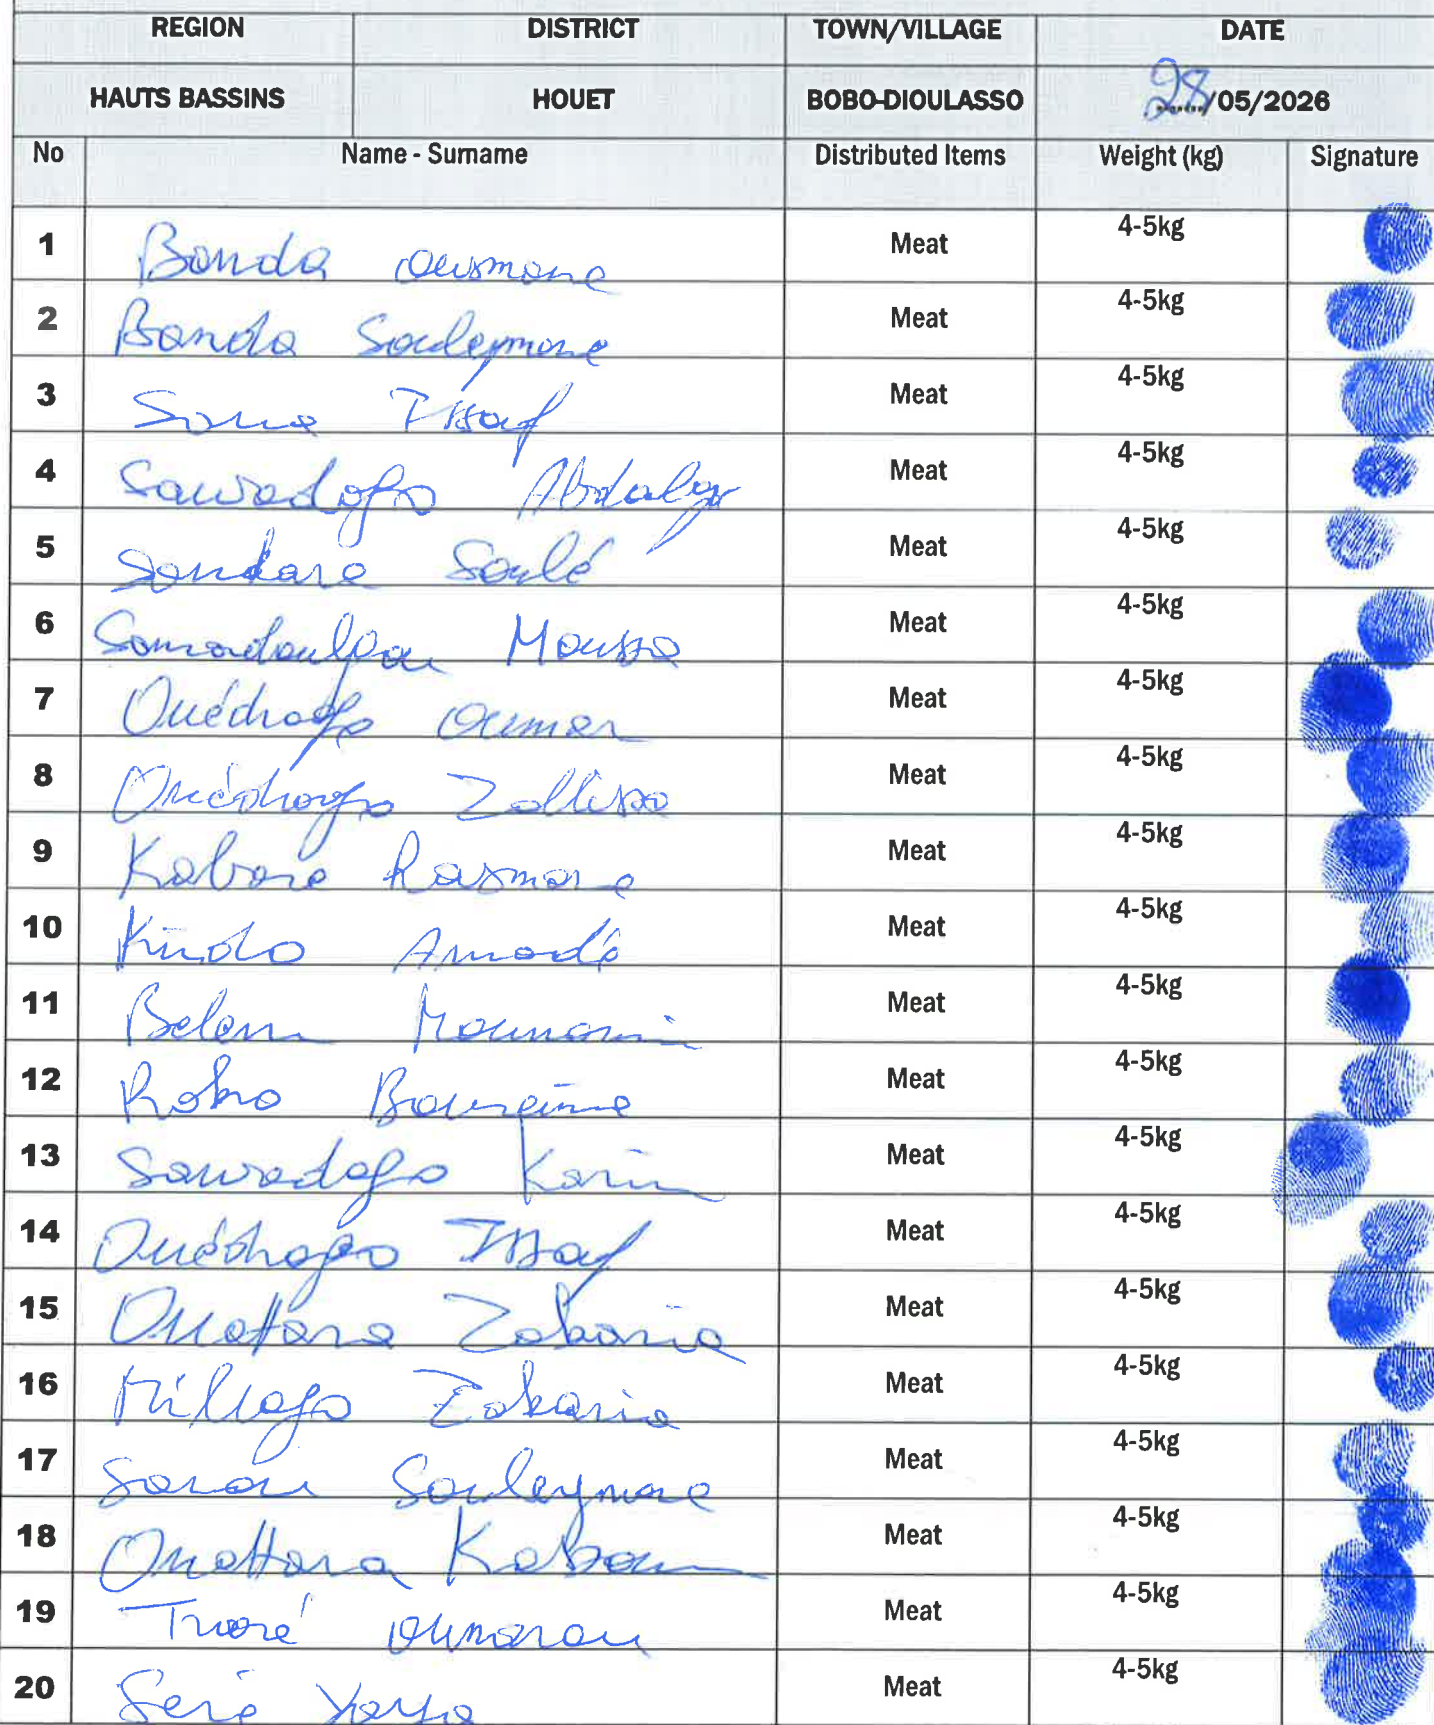 REGION DISTRICT TOWN/VILLAGE DATE
HAUTS BASSINS HOUET BOBO-DIOULASSO 28/05/2026
No Name - Surname Distributed Items Weight (kg) Signature
1 Banda Ousmane Meat 4-5kg
2 Banda Souleymane Meat 4-5kg
3 Issouf Meat 4-5kg
4 Sawadogo Meat 4-5kg
5 Soulé Meat 4-5kg
6 Moussa Meat 4-5kg
7 Ouédraogo Oumar Meat 4-5kg
8 Ouédraogo Meat 4-5kg
9 Kabore Rasmane Meat 4-5kg
10 Kindo Amadé Meat 4-5kg
11 Belem Mounouni Meat 4-5kg
12 Meat 4-5kg
13 Sawadogo Karim Meat 4-5kg
14 Ouédraogo Issouf Meat 4-5kg
15 Ouattara Zakaria Meat 4-5kg
16 Zakaria Meat 4-5kg
17 Souleymane Meat 4-5kg
18 Ouattara Meat 4-5kg
19 Traoré Oumarou Meat 4-5kg
20 Seré Yaya Meat 4-5kg